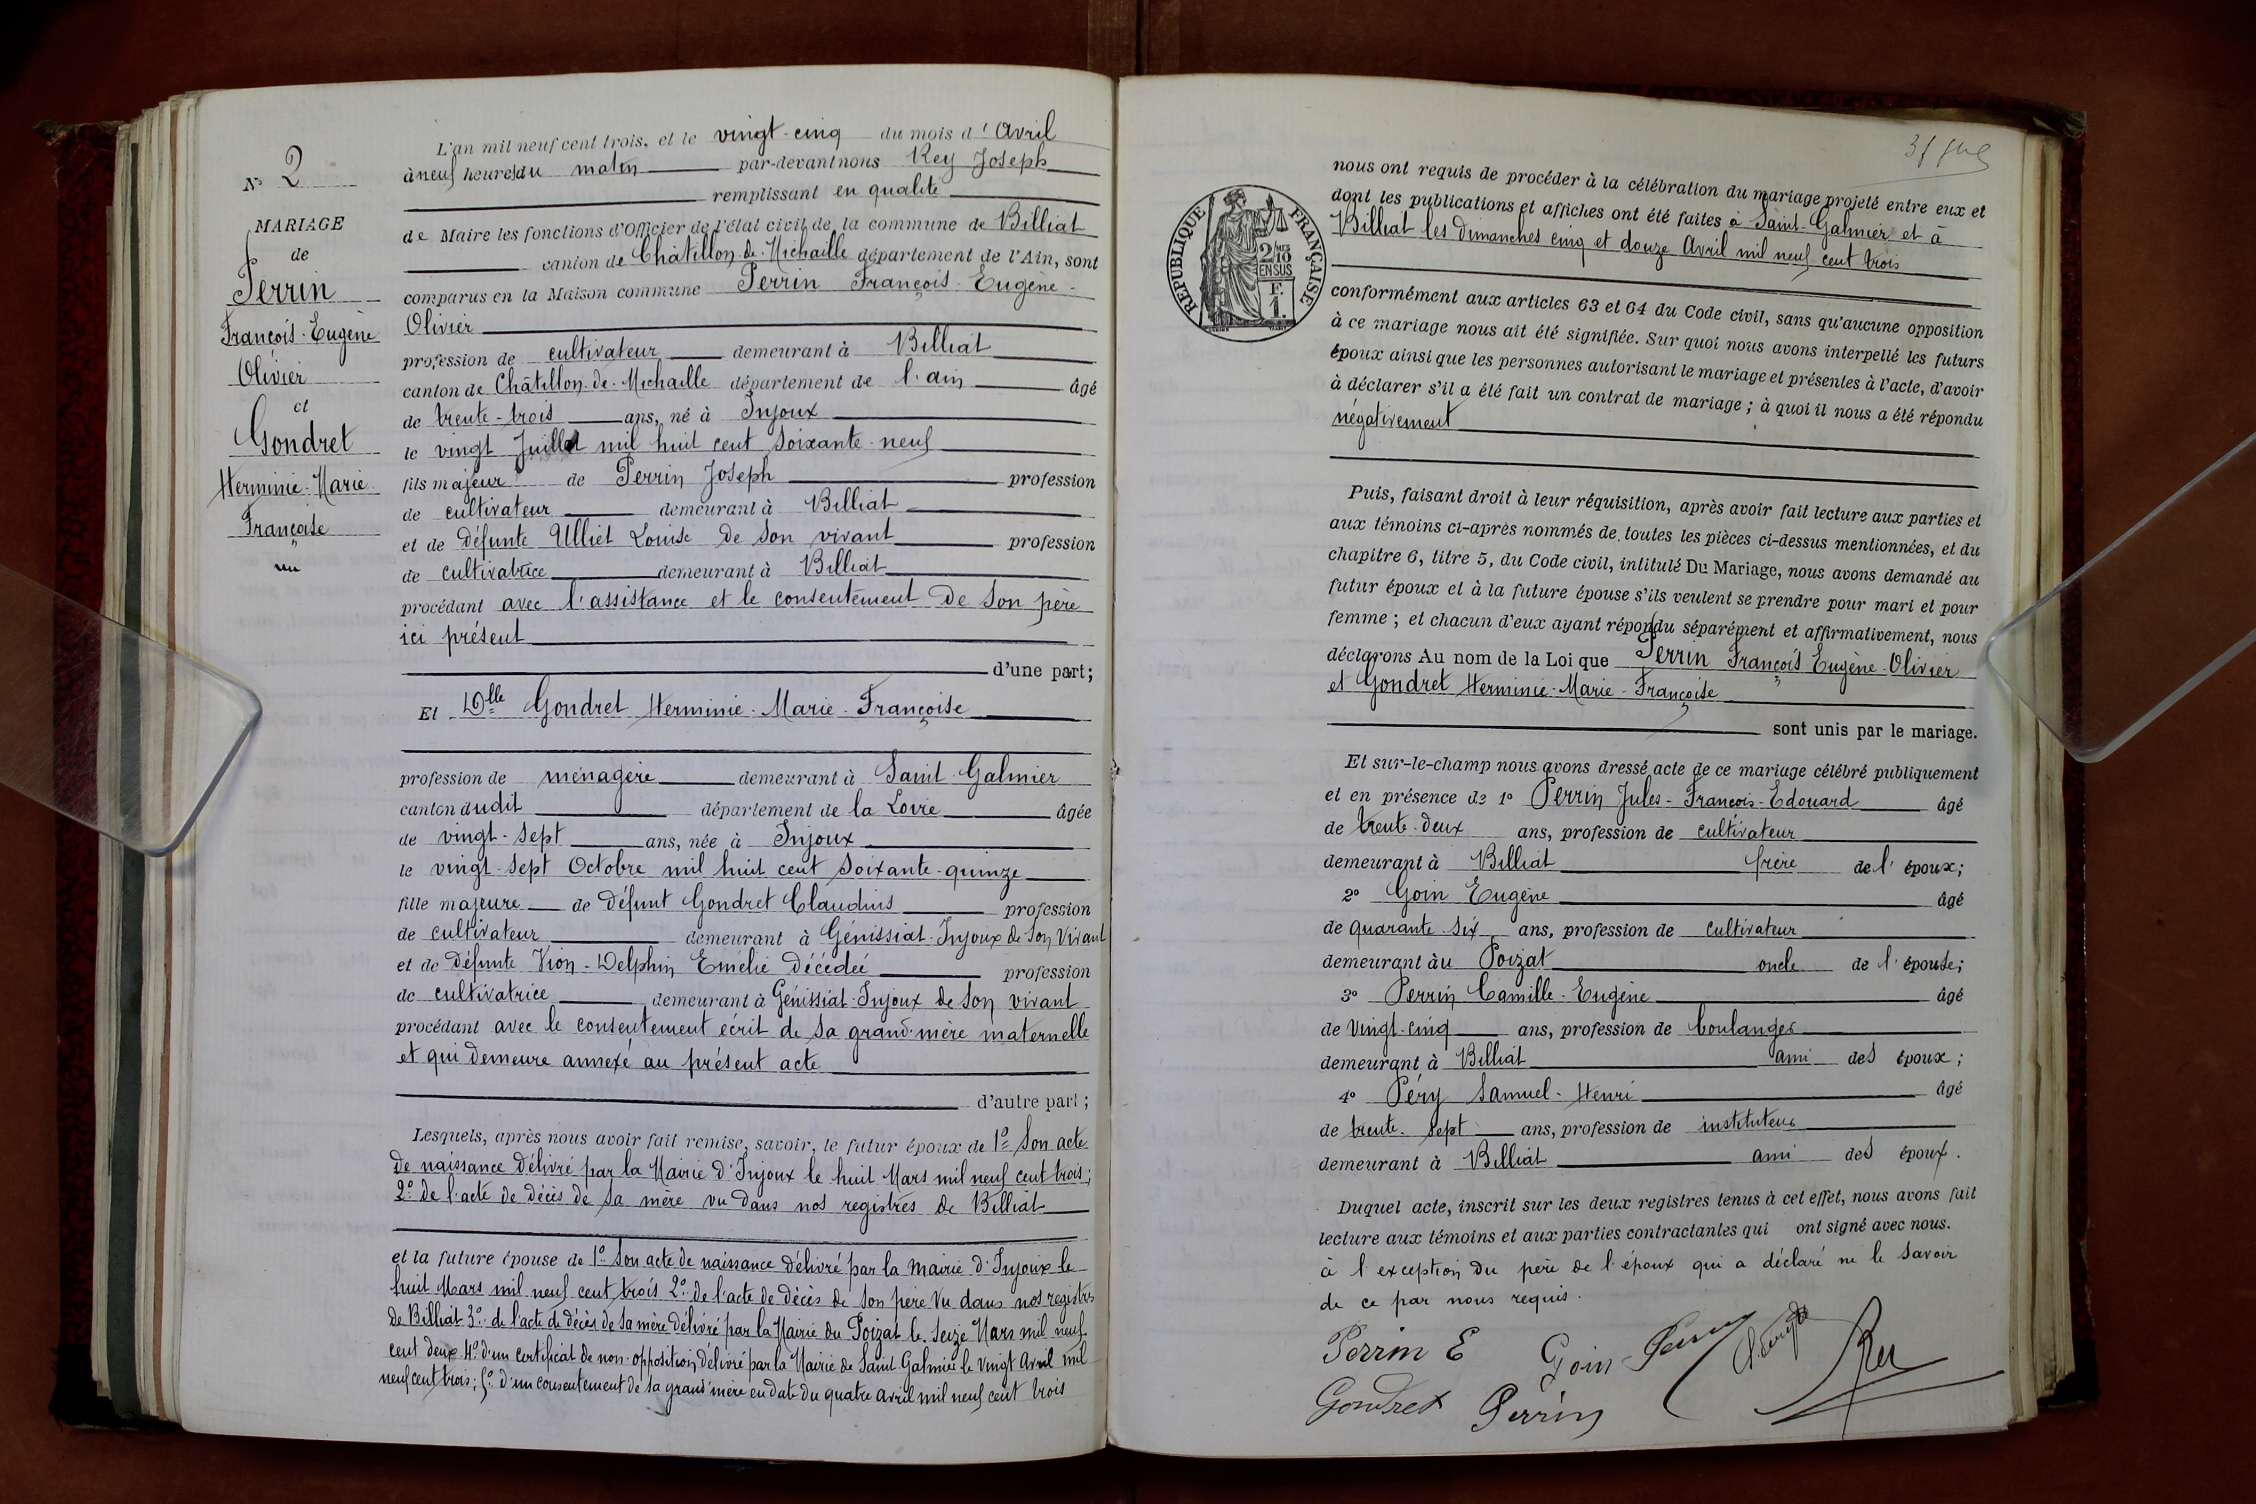 N° 2
MARIAGE
de
Perrin
François-Eugène
Olivier
et
Gondret
Herminie-Marie
Françoise
L'an mil neuf cent trois, et le vingt-cinq du mois d'Avril
à neuf heures du matin par-devant nous Rey Joseph
remplissant en qualité
de Maire les fonctions d'Officier de l'état civil de la commune de Billiat
canton de Châtillon-de-Michaille département de l'Ain, sont
comparus en la Maison commune Perrin François-Eugène-
Olivier
profession de cultivateur demeurant à Billiat
canton de Châtillon-de-Michaille département de l'ain âgé
de trente-trois ans, né à Injoux
le vingt Juillet mil huit cent soixante-neuf
fils majeur de Perrin Joseph profession
de cultivateur demeurant à Billiat
et de défunte Ulliet Louise de son vivant profession
de cultivatrice demeurant à Billiat
procédant avec l'assistance et le consentement de son père
ici présent
d'une part;
Et Dlle Gondret Herminie-Marie-Françoise
profession de ménagère demeurant à Saint-Galmier
canton dudit département de la Loire âgée
de vingt-sept ans, née à Injoux
le vingt-sept Octobre mil huit cent soixante-quinze
fille majeure de défunt Gondret Claudius profession
de cultivateur demeurant à Génissiat-Injoux de son vivant
et de défunte Vion-Delphin Emélie décédée profession
de cultivatrice demeurant à Génissiat-Injoux de son vivant
procédant avec le consentement écrit de sa grand-mère maternelle
et qui demeure annexé au présent acte
d'autre part;
Lesquels, après nous avoir fait remise, savoir, le futur époux de 1° Son acte
de naissance délivré par la Mairie d'Injoux le huit Mars mil neuf cent trois;
2° de l'acte de décès de sa mère vu dans nos registres de Billiat
et la future épouse de 1° Son acte de naissance délivré par la mairie d'Injoux le
huit Mars mil neuf cent trois 2° de l'acte de décès de son père vu dans nos registres
de Billiat 3° de l'acte de décès de sa mère délivré par la Mairie du Poizat le seize Mars mil neuf
cent deux 4° d'un certificat de non-opposition délivré par la Mairie de Saint Galmier le vingt Avril mil
neuf cent trois; 5° d'un consentement de sa grand'mère en date du quatre avril mil neuf cent trois
RÉPUBLIQUE FRANÇAISE
2/10 EN SUS
F. 1.
nous ont requis de procéder à la célébration du mariage projeté entre eux et
dont les publications et affiches ont été faites à Saint-Galmier et à
Billiat les dimanches cinq et douze Avril mil neuf cent trois
conformément aux articles 63 et 64 du Code civil, sans qu'aucune opposition
à ce mariage nous ait été signifiée. Sur quoi nous avons interpellé les futurs
époux ainsi que les personnes autorisant le mariage et présentes à l'acte, d'avoir
à déclarer s'il a été fait un contrat de mariage; à quoi il nous a été répondu
négativement
Puis, faisant droit à leur réquisition, après avoir fait lecture aux parties et
aux témoins ci-après nommés de toutes les pièces ci-dessus mentionnées, et du
chapitre 6, titre 5, du Code civil, intitulé Du Mariage, nous avons demandé au
futur époux et à la future épouse s'ils veulent se prendre pour mari et pour
femme; et chacun d'eux ayant répondu séparément et affirmativement, nous
déclarons Au nom de la Loi que Perrin François Eugène-Olivier
et Gondret Herminie-Marie-Françoise
sont unis par le mariage.
Et sur-le-champ nous avons dressé acte de ce mariage célébré publiquement
et en présence de 1° Perrin Jules-François-Edouard âgé
de trente-deux ans, profession de cultivateur
demeurant à Billiat frère de l'époux;
2° Goin Eugène âgé
de quarante-six ans, profession de cultivateur
demeurant au Poizat oncle de l'épouse;
3° Perrin Camille-Eugène âgé
de Vingt-cinq ans, profession de boulanger
demeurant à Billiat ami des époux;
4° Péry Samuel-Henri âgé
de trente-sept ans, profession de instituteur
demeurant à Billiat ami des époux.
Duquel acte, inscrit sur les deux registres tenus à cet effet, nous avons fait
lecture aux témoins et aux parties contractantes qui ont signé avec nous.
à l'exception du père de l'époux qui a déclaré ne le savoir
de ce par nous requis.
Perrin E Goin Rey
Gondret Perrin